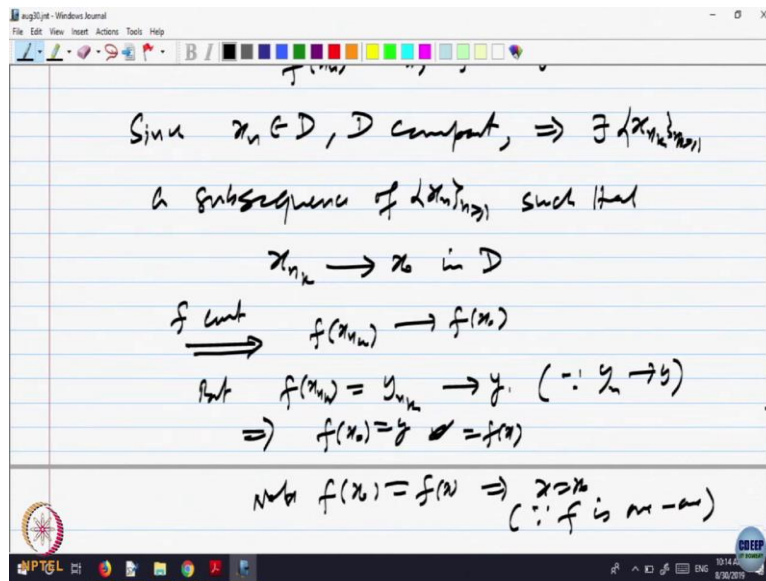 aug30.jnt - Windows Journal
File Edit View Insert Actions Tools Help
B I
Since x_n ∈ D, D compact, ⇒ ∃ {x_{n_k}}_{n≥1}
a subsequence of {x_n}_{n≥1} such that
x_{n_k} → x_0 in D
f cont ⇒ f(x_{n_k}) → f(x_0)
But f(x_{n_k}) = y_{n_k} → y. (∵ y_n → y)
⇒ f(x_0) = y = f(x)
Note f(x_0) = f(x) ⇒ x = x_0
(∵ f is one-one)
CDEEP
IIT BOMBAY
NPTEL
ENG
10:14 AM
8/30/2019